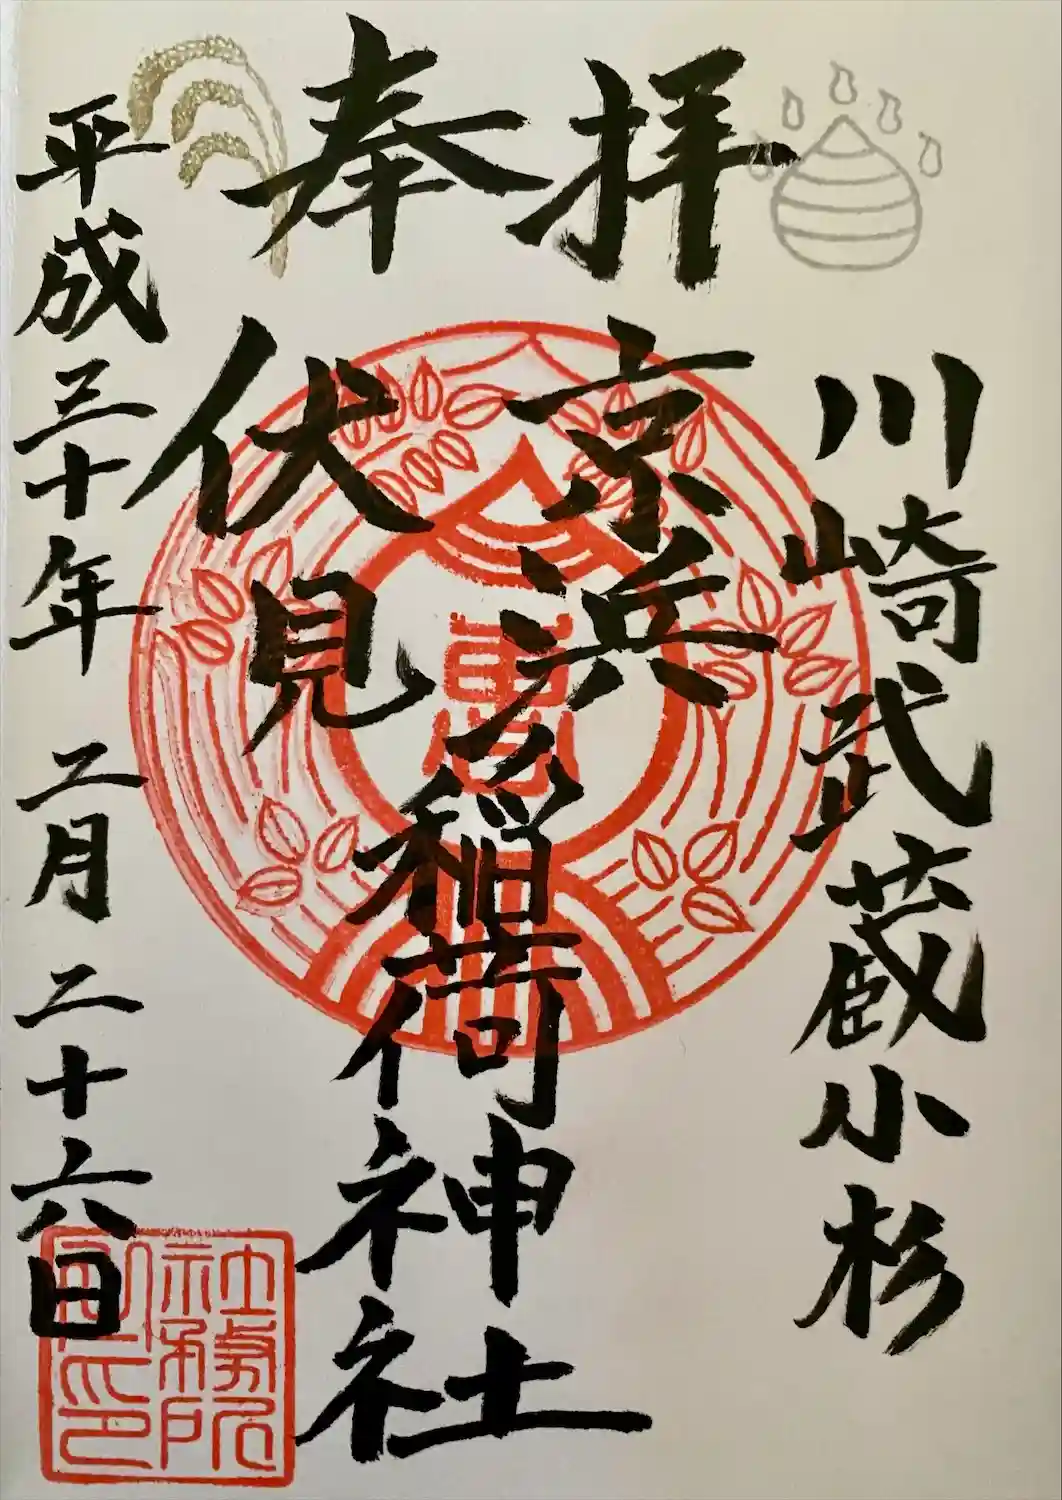 奉拝
川崎武蔵小杉
京浜伏見稲荷神社
平成三十年二月二十六日